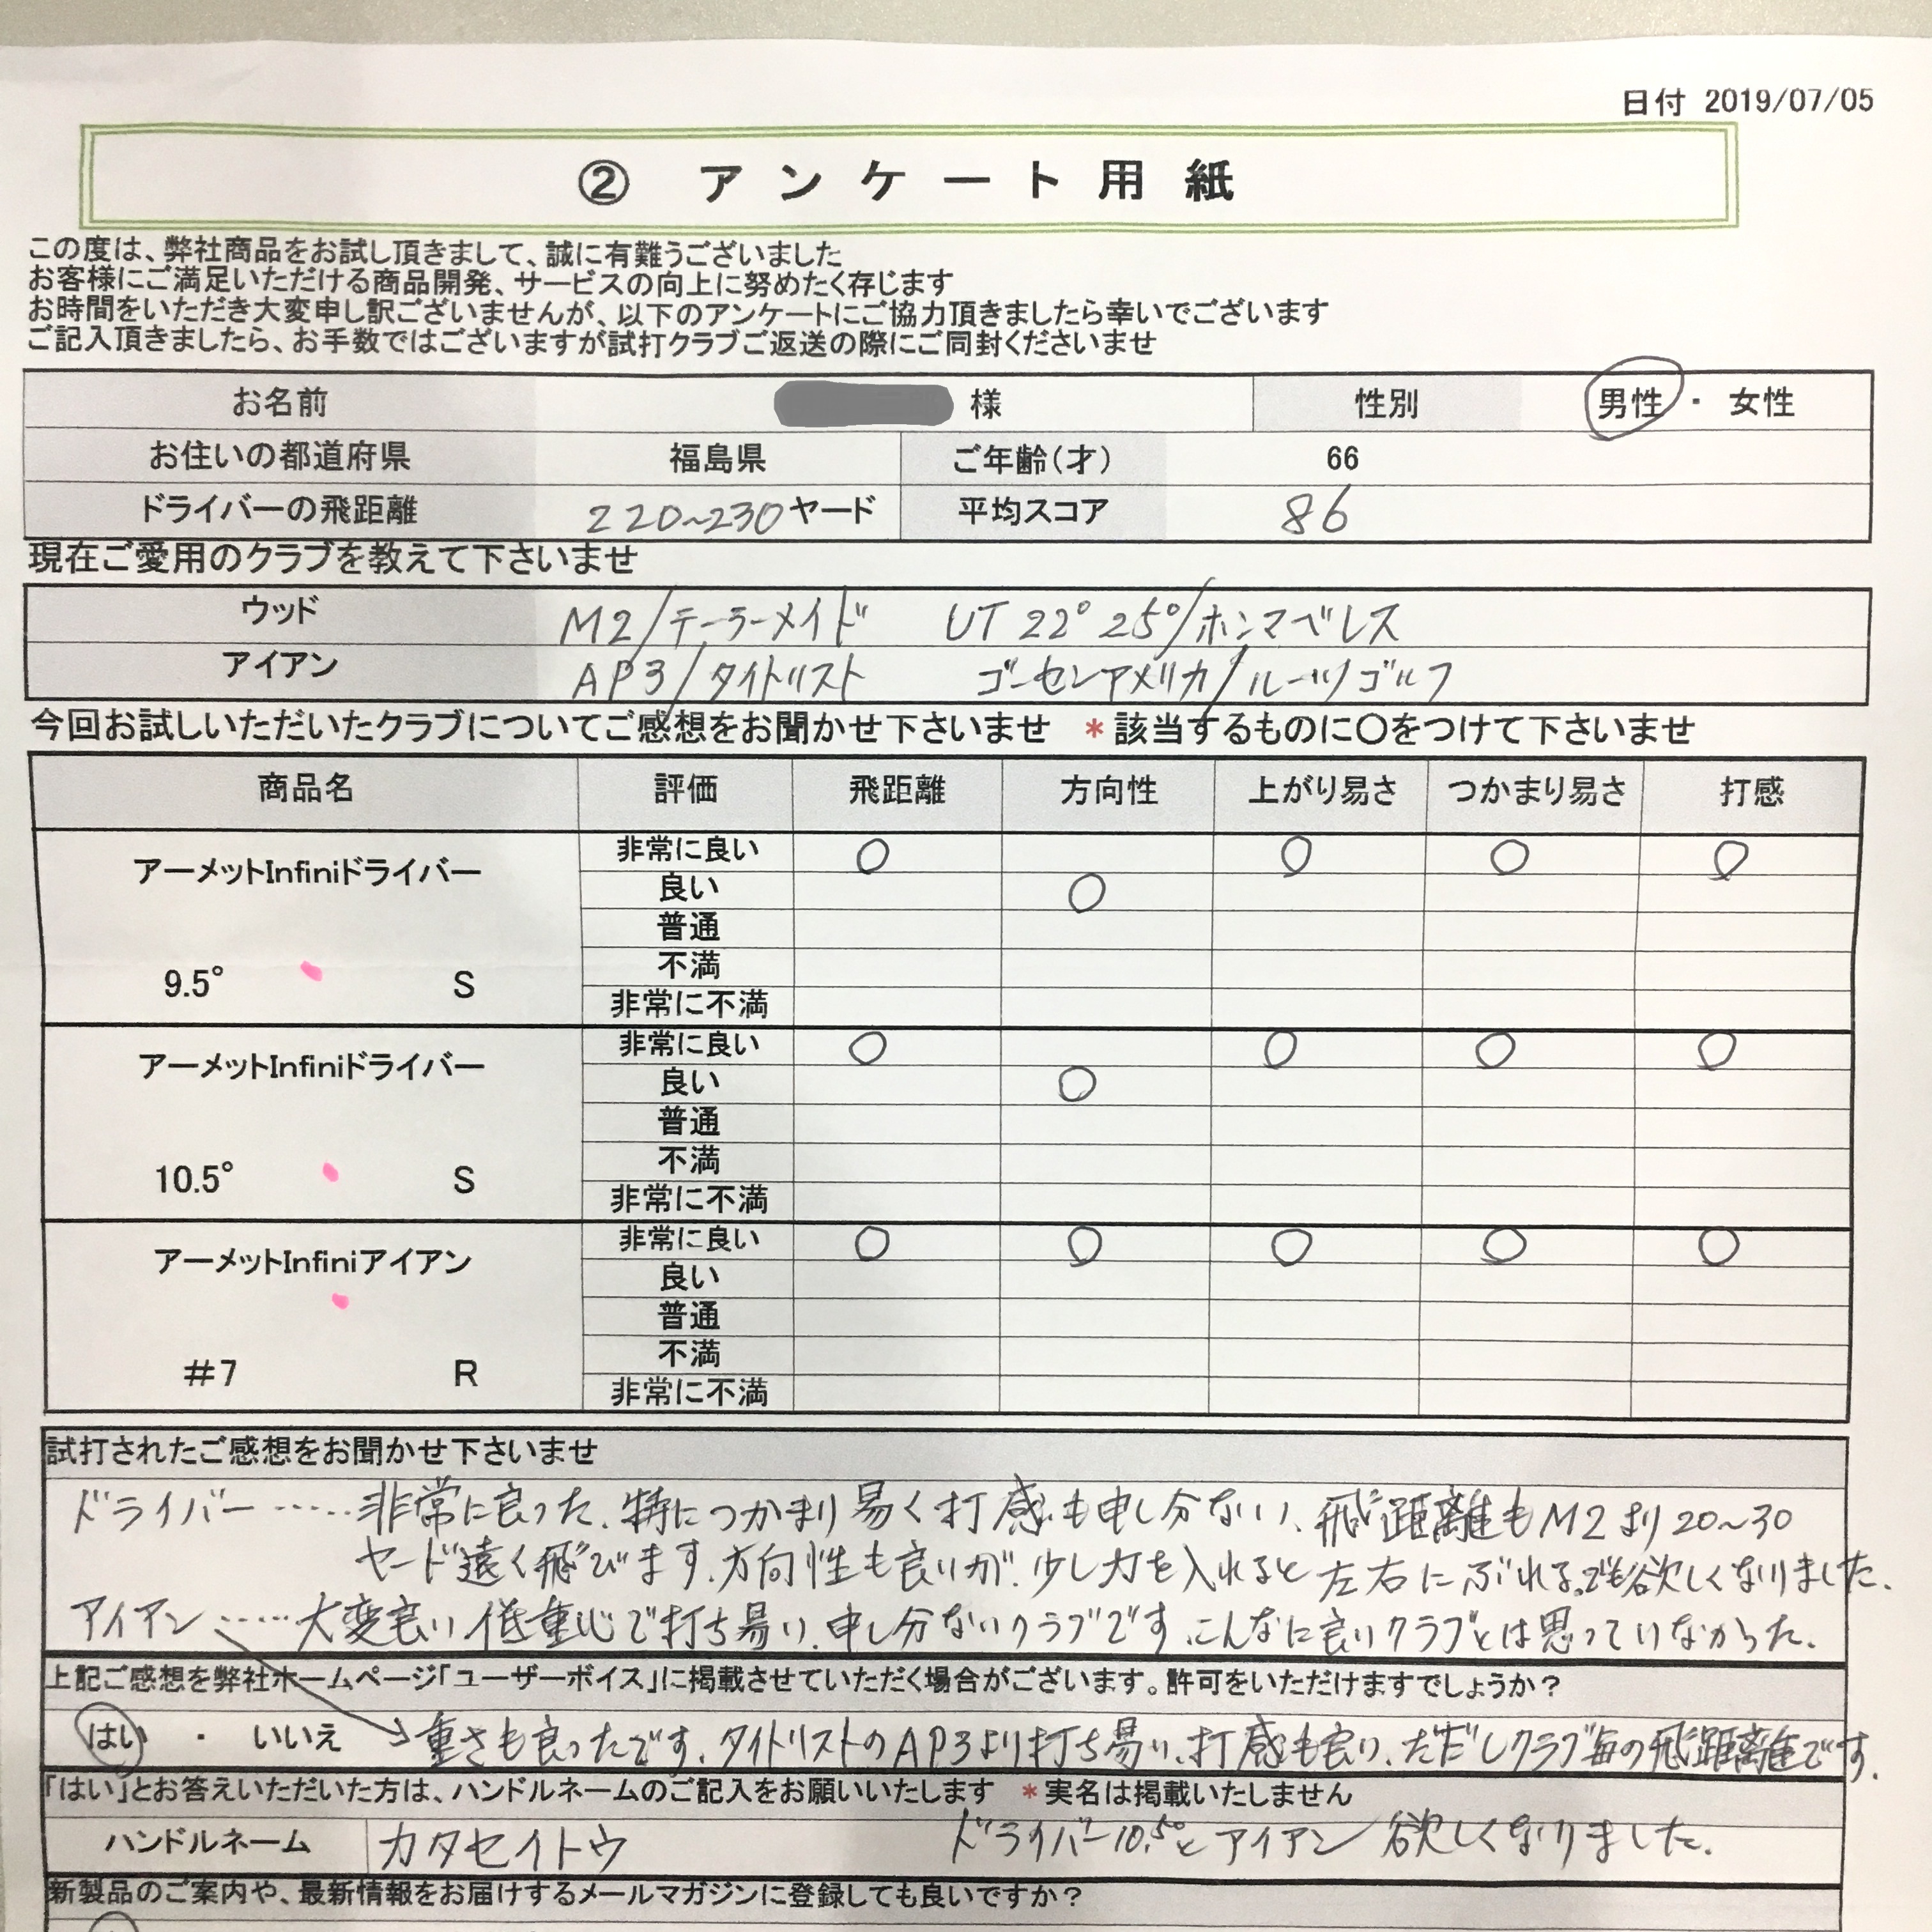 日付 2019/07/05
② アンケート用紙
この度は、弊社商品をお試し頂きまして、誠に有難うございました
お客様にご満足いただける商品開発、サービスの向上に努めたく存じます
お時間をいただき大変申し訳ございませんが、以下のアンケートにご協力頂きましたら幸いでございます
ご記入頂きましたら、お手数ではございますが試打クラブご返送の際にご同封くださいませ
お名前 様 性別 男性 ・ 女性
お住いの都道府県 福島県 ご年齢(才) 66
ドライバーの飛距離 220~230ヤード 平均スコア 86
現在ご愛用のクラブを教えて下さいませ
ウッド M2/テーラーメイド UT 22° 25°/ホンマベレス
アイアン AP3/タイトリスト ゴーセンアメリカ/ルーツゴルフ
今回お試しいただいたクラブについてご感想をお聞かせ下さいませ *該当するものに〇をつけて下さいませ
商品名 評価 飛距離 方向性 上がり易さ つかまり易さ 打感
アーメットInfiniドライバー 非常に良い ○ ○ ○ ○
良い ○
普通
不満
9.5° S 非常に不満
アーメットInfiniドライバー 非常に良い ○ ○ ○ ○
良い ○
普通
不満
10.5° S 非常に不満
アーメットInfiniアイアン 非常に良い ○ ○ ○ ○ ○
良い
普通
不満
#7 R 非常に不満
試打されたご感想をお聞かせ下さいませ
ドライバー‥‥‥非常に良った、特につかまり易く打感も申し分ない、飛距離もM2より20~30
ヤード遠く飛びます.方向性も良いが.少し力を入れると左右にぶれる。でも欲しくなりました.
アイアン‥‥‥大変良い低重心で打ち易い.申し分ないクラブです.こんなに良いクラブとは思っていなかった.
上記ご感想を弊社ホームページ「ユーザーボイス」に掲載させていただく場合がございます。許可をいただけますでしょうか?
はい ・ いいえ →重さも良ったです.タイトリストのAP3より打ち易い、打感も良い、ただしクラブ毎の飛距離です.
「はい」とお答えいただいた方は、ハンドルネームのご記入をお願いいたします *実名は掲載いたしません
ハンドルネーム カタセイトウ ドライバー10.5°とアイアン欲しくなりました.
新製品のご案内や、最新情報をお届けするメールマガジンに登録しても良いですか?